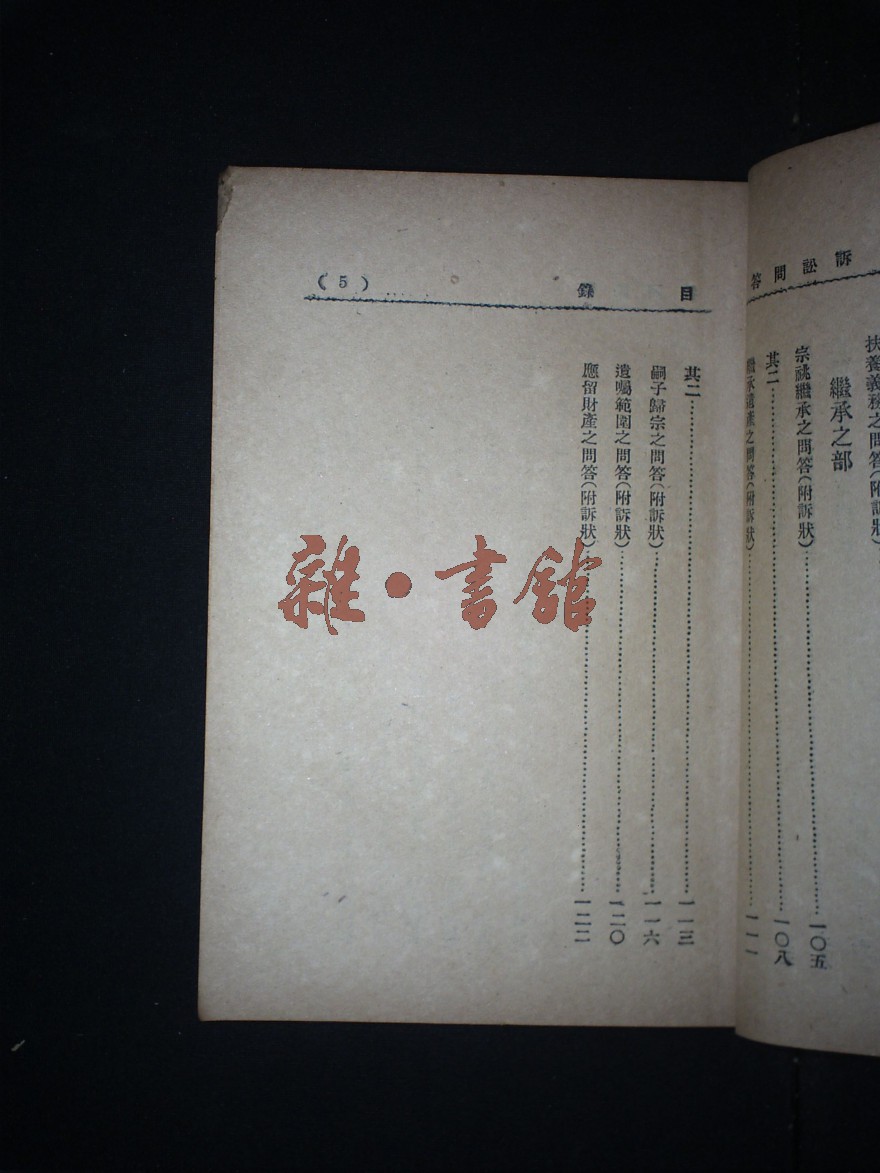 訴訟問答
扶養義務之問答(附訴狀)
繼承之部
宗祧繼承之問答(附訴狀)……一〇五
其二……一〇八
繼承遺產之問答(附訴狀)……一一一
目錄 (5)
其二……一一三
嗣子歸宗之問答(附訴狀)……一一六
遺囑範圍之問答(附訴狀)……一二〇
應留財產之問答(附訴狀)……一二二
雜·書館